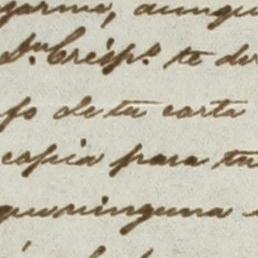 garme, aunqu
Dn. Crespo. te de
fo de tu carta
copia para tu
que ninguna